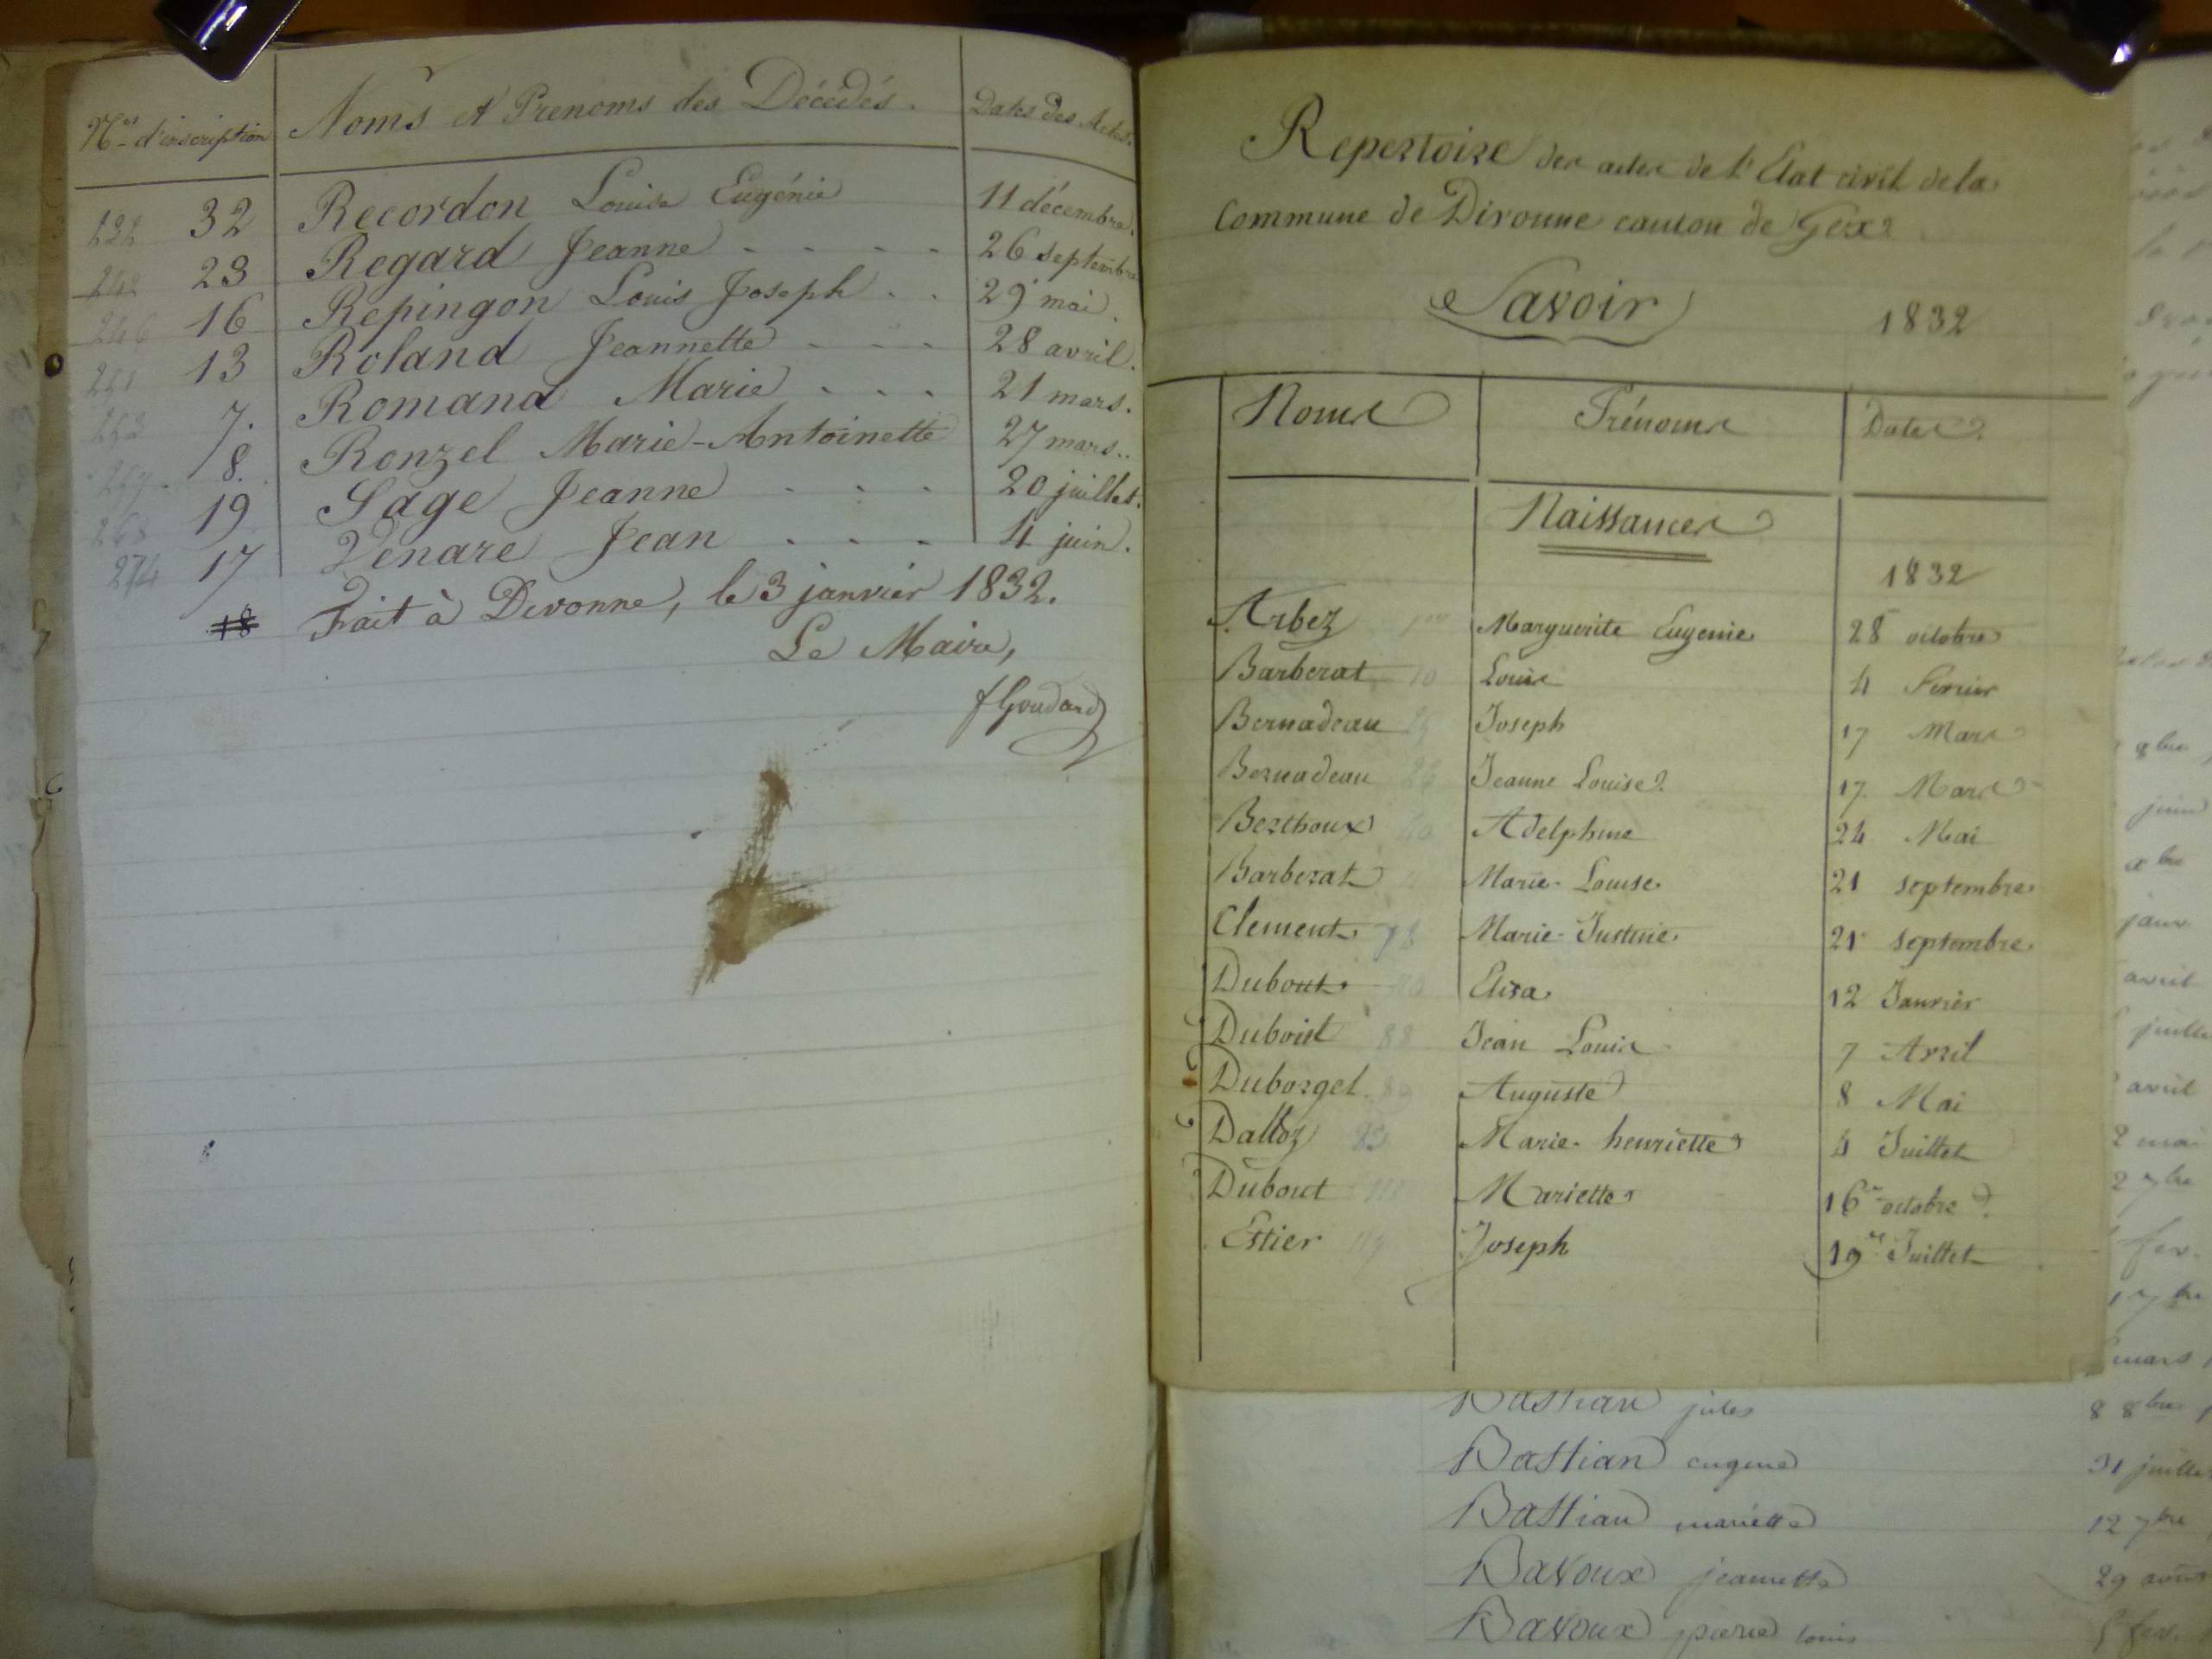 Nos d'inscription Noms et Prenoms des Décédés. Dates des Actes.
232 32 Recordon Louise Eugénie 11 décembre.
23 Regard Jeanne 26 septembre
246 16 Repingon Louis Joseph 29 mai.
251 13 Roland Jeannette 28 avril.
7. Romand Marie 21 mars.
8. Ronzel Marie-Antoinette 27 mars.
19 Sage Jeanne 20 juillet.
274 17 Venare Jean 4 juin.
18 Fait à Divonne, le 3 janvier 1832.
Le Maire,
f Goudard
Repertoire des actes de l'Etat civil de la
Commune de Divonne canton de Gex
Savoir 1832
Noms Prénoms Dates
Naissances
1832
Arbez Marguerite Eugenie 28 octobre
Barberat 10 Louis 4 Fevrier
Bernadeau Joseph 17 Mars
Bernadeau Jeanne Louise 17 Mars
Berthoux Adelphine 24 Mai
Barberat Marie-Louise 21 septembre
Clement Marie-Justine 21 septembre
Dubout Elisa 12 Janvier
Duboist 88 Jean Louis 7 Avril
Duborgel 89 Auguste 8 Mai
Dalloz Marie-henriette 4 Juillet
Dubout Mariette 16 octobre
Estier Joseph 19 Juillet
Bastian jules 8 8bre
Bastian eugene 31 juillet
Bastian mariette 12 7bre
Bavoux jeannette 29
Bavoux pierre louis fev.